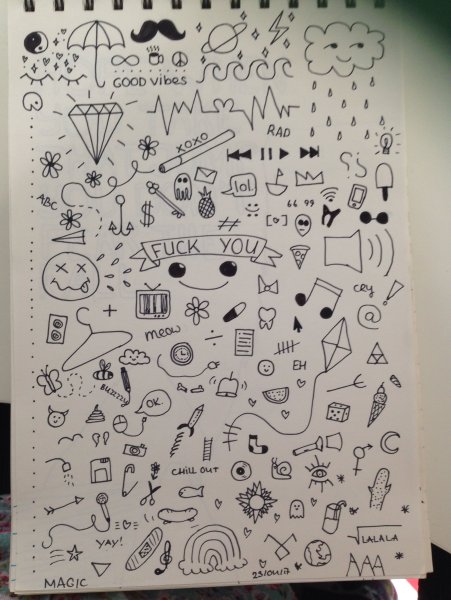 GOOD vibes
xoxo
RAD
lol.
ABC
$
" "
#
FUCK YOU
cry
!
@
+
meow
÷
EH
BUZZZZZ
OK.
CHILL OUT
YAY!
√LALALA
AAA
MAGIC
23/04/17